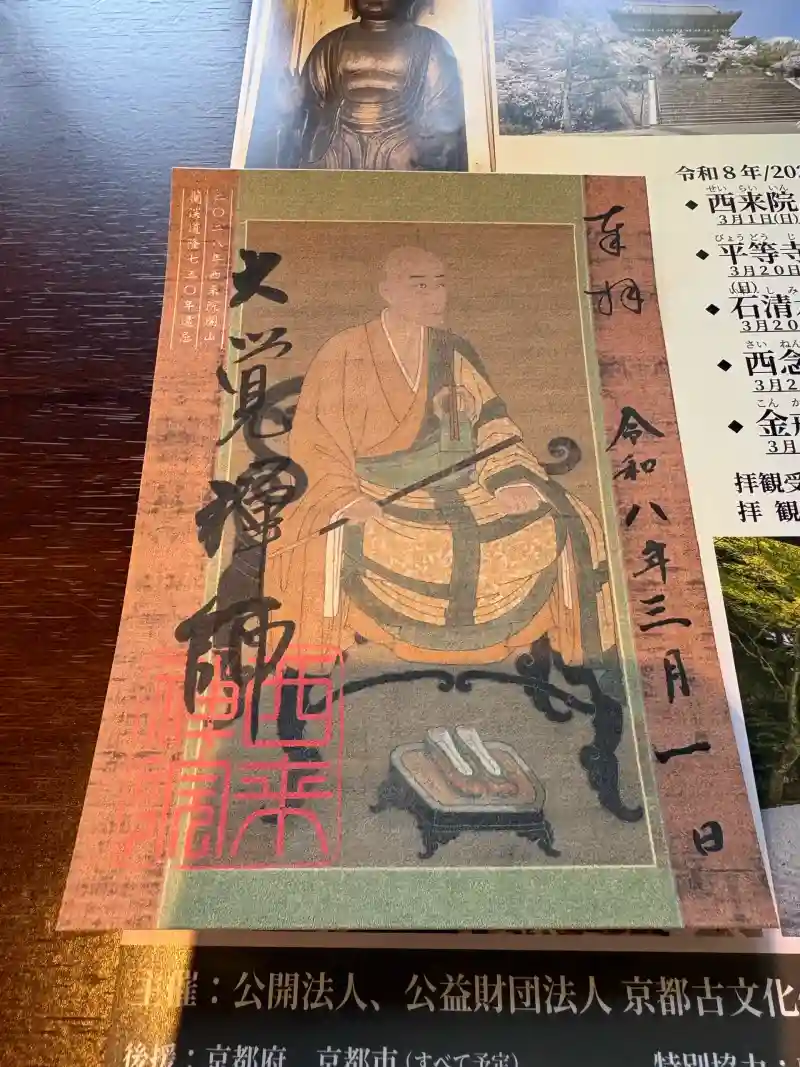 奉拝
令和八年三月一日
大覚禅師
二〇二八年西来院開山
蘭渓道隆七五〇年遠忌
西来
禅院
令和8年/202
せいらいいん
◆西来院
3月1日(日)
びょうどうじ
◆平等寺
3月20日
(日)
いわしみ
◆石清水
3月20
さいねん
◆西念
3月2
こんか
◆金戒
3月
拝観受
拝 観
主催：公開法人、公益財団法人 京都古文化
後援：京都府、京都市(すべて予定)
特別協力：